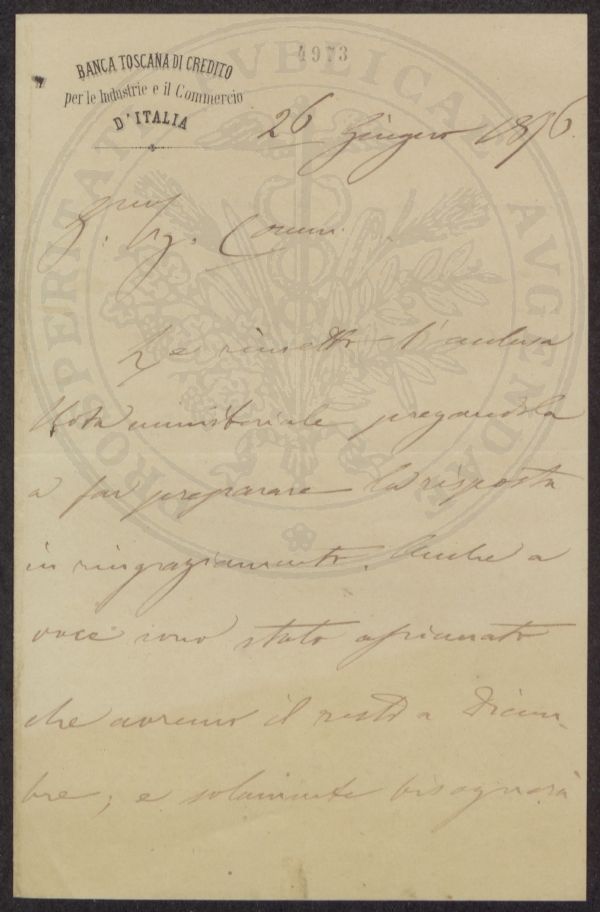 4973
BANCA TOSCANA DI CREDITO
per le Industrie e il Commercio
D'ITALIA
26 Giugno 1876.
Sig.
Le rimetto l'acclusa
Nota ministeriale pregandola
a far preparare la risposta
in ringraziamento. Anche a
voce sono stato assicurato
che avremo il resto a Dicem-
bre; e solamente bisognerà
PROSPERITATI PVBLICAE AVGENDAE